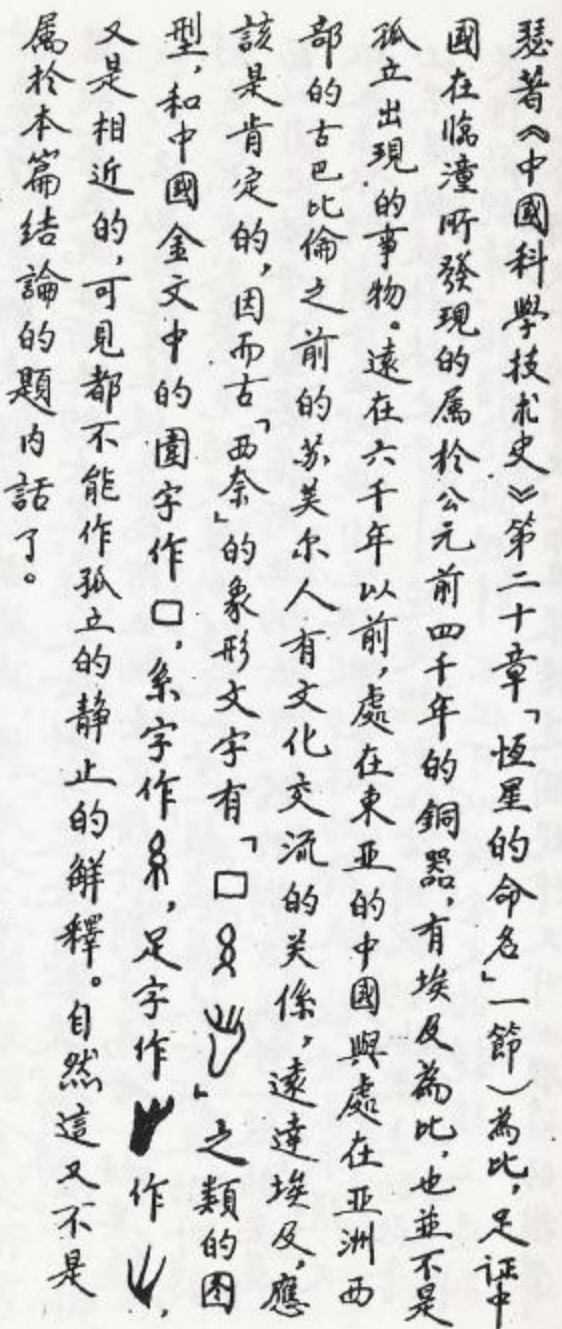 瑟著《中國科學技术史》第二十章「恆星的命名」一節)為比,足证中
國在臨潼所發現的属於公元前四千年的銅器,有埃及為比,也並不是
孤立出現的事物。遠在六千年以前,處在東亚的中國與處在亚洲西
部的古巴比倫之前的苏美尔人有文化交流的关係,遠達埃及,應
該是肯定的,因而古「西奈」的象形文字有「□」之類的图
型,和中國金文中的圍字作□,糸字作,足字作作,
又是相近的,可見都不能作孤立的静止的解釋。自然這又不是
属於本篇结論的題内話了。